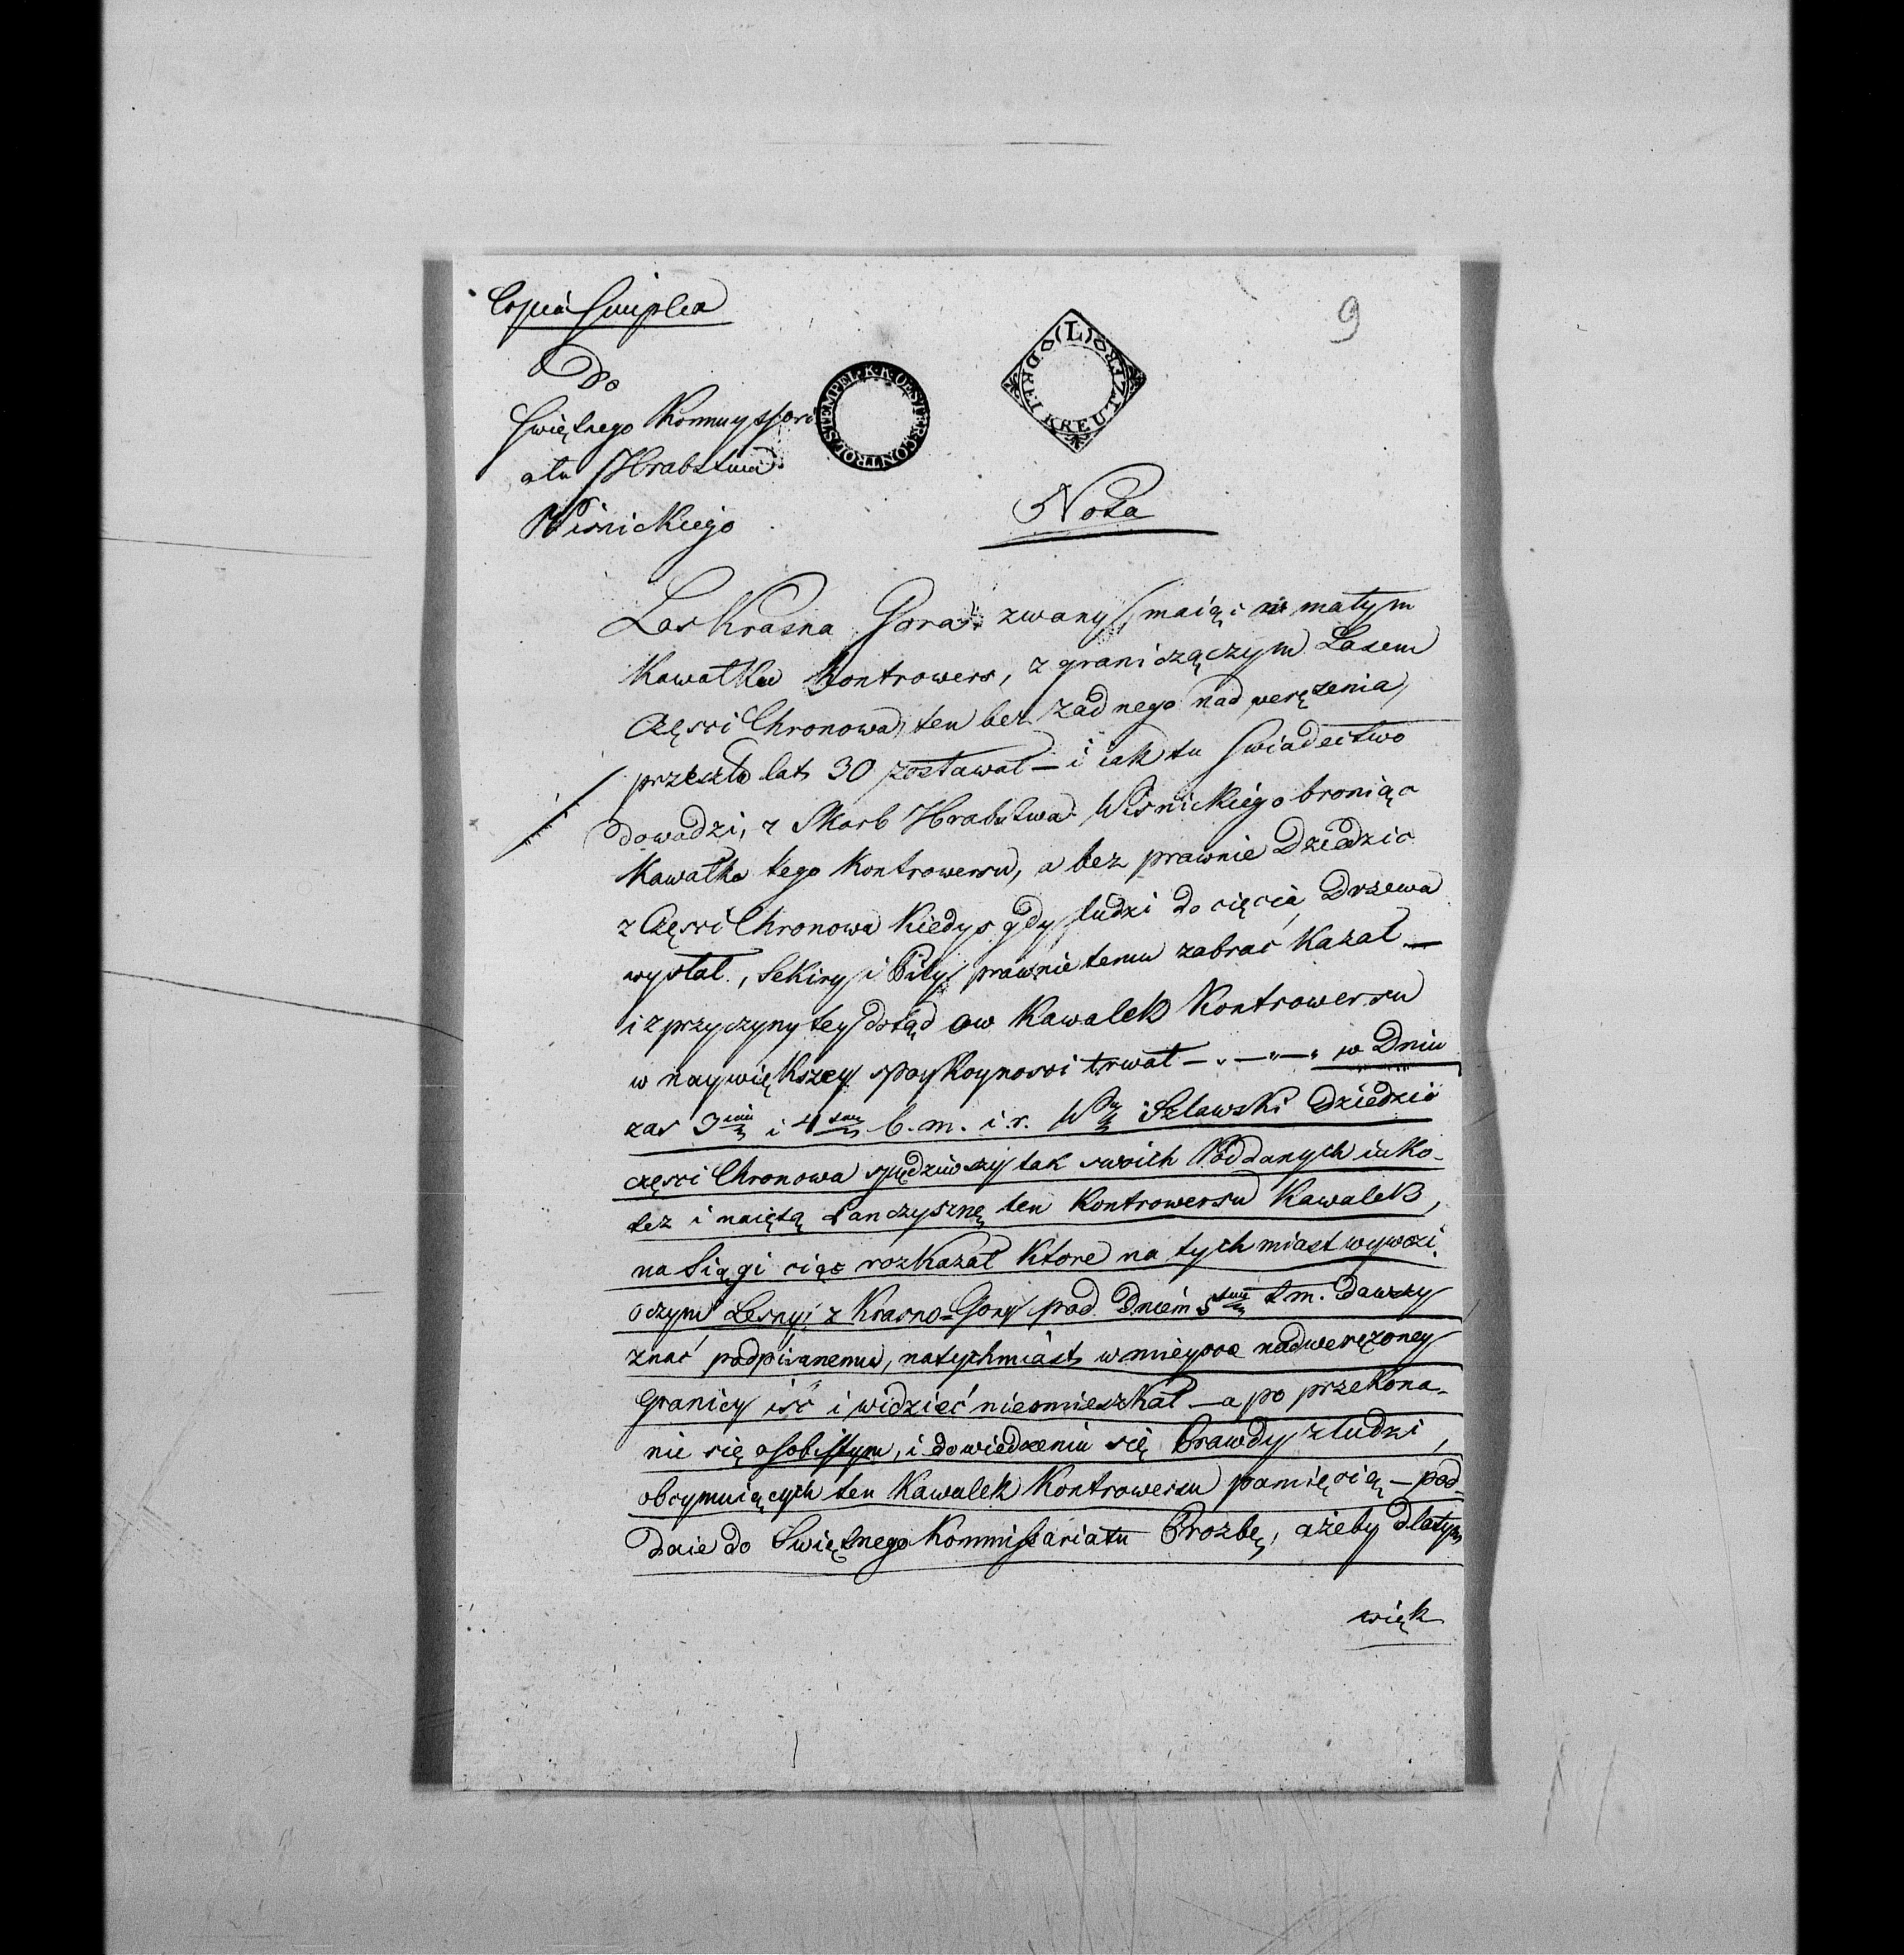 Copia Simplex
9
Do
Swiętnego Kommyssari
atu Hrabstwa
Wisnickiego
K. K. OESTER. CONTROL STEMPEL
(L) DREI KREUTZER
Nota
Las Krasna Gora zwany maiąc w małym
Kawałku Kontrowers, z graniczączym Lasem
Częsci Chronowa, ten bez zadnego nadwerężenia,
przeszło lat 30 zostawał — i iak tu swiadectwo
dowadzi, z Skarb Hrabstwa Wisnickiego broniąc
Kawałka tego Kontrowersu, a bez prawnie Dziedzic
z Częsci Chronowa Kiedys gdy ludzi do cięcia Drzewa
wysłał, Sekiry i Piły prawnie temu zabrać Kazał —
i z przyczyny tey dotąd ow Kawałek Kontrowersu
w naywiększey spoykoynosci trwał — w Dniu
zas 3 i 4 b. m. i r. W Szlawski Dziedzic
częsci Chronowa spędziwszy tak swoich Poddanych iako
tez i naiętą ten Kontrowersu Kawałek,
na Siągi ciąć rozkazał Ktore na tychmiast wywozi.
oczym Lesny z Krasno-Gory pod Dniem 5 t. m. dawszy
znać podpisanemu, natychmiast w mieysce nadwerężoney
granicy iść i widzieć nieomieszkał — a po przekona-
nie się osobistym, i dowiedzeniu się Prawdy z ludzi,
obeymuiących ten Kawałek Kontrowersu pamięcią — pod-
daie do Swiętnego Kommissariatu Prozbę, ażeby dlatym
więk